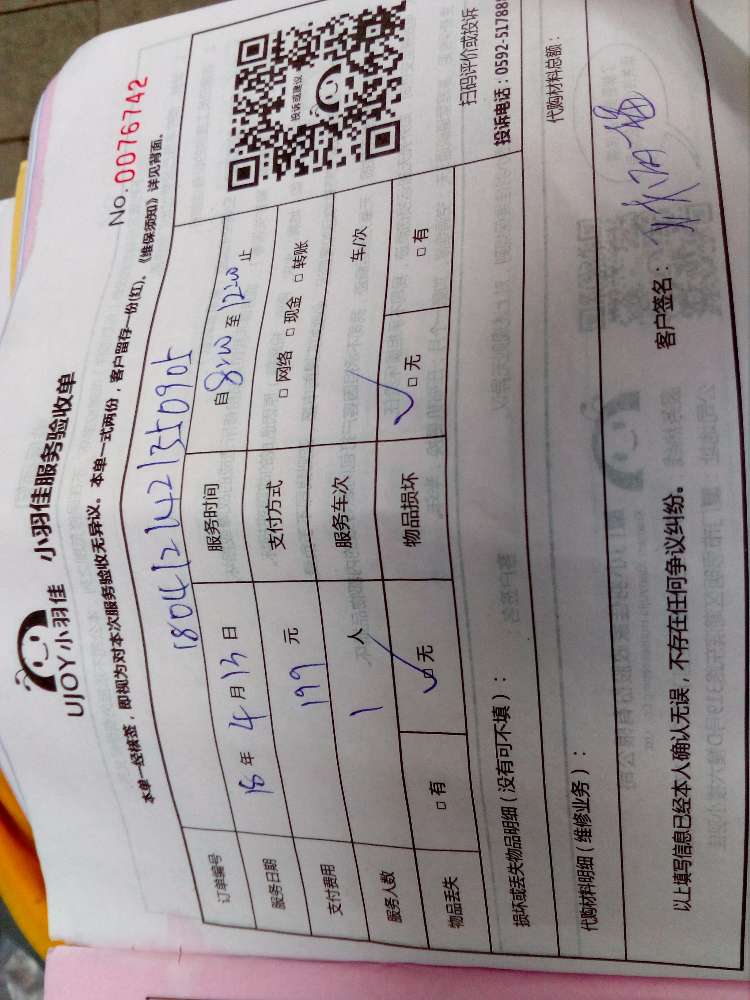 UJOY小羽佳 小羽佳服务验收单
No. 0076742
本单一经核签，即视为对本次服务验收无异议。本单一式两份，客户留存一份(红)，《维保须知》详见背面。
订单编号
服务日期 18 年 4 月 13 日 服务时间 自 8:00 至 12:00 止
支付费用 199 元 支付方式 □ 网络 □ 现金 □ 转账
服务人数 1 人 服务车次 车/次
物品丢失 □ 有 □ 无 物品损坏 □ 无 □ 有
投诉或建议
扫码评价或投诉
损坏或丢失物品明细（没有可不填）：
代购材料明细（维修业务）：
代购材料总额：
以上填写信息已经本人确认无误，不存在任何争议纠纷。
客户签名：